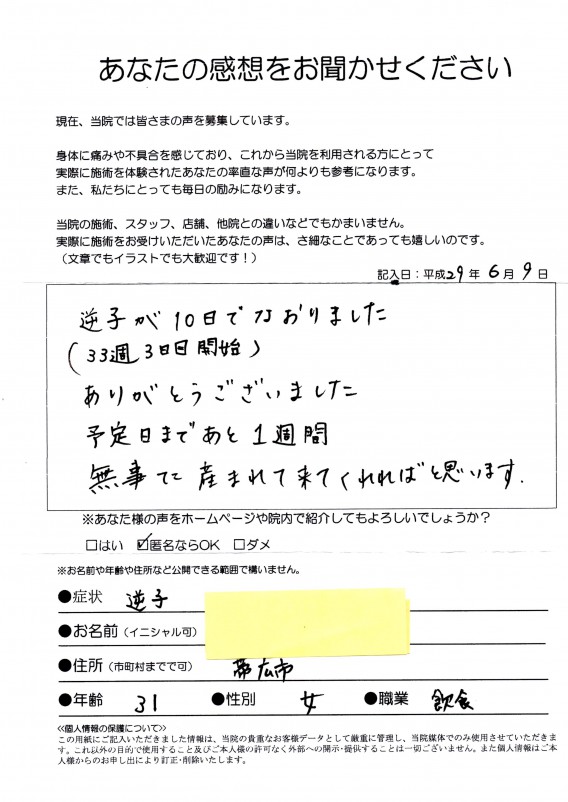 あなたの感想をお聞かせください
現在、当院では皆さまの声を募集しています。
身体に痛みや不具合を感じており、これから当院を利用される方にとって
実際に施術を体験されたあなたの率直な声が何よりも参考になります。
また、私たちにとっても毎日の励みになります。
当院の施術、スタッフ、店舗、他院との違いなどでもかまいません。
実際に施術をお受けいただいたあなたの声は、さ細なことであっても嬉しいのです。
（文章でもイラストでも大歓迎です！）
記入日：平成29年6月9日
逆子が10日でなおりました
(33週3日目開始)
ありがとうございました
予定日まであと1週間
無事に産まれて来てくれればと思います.
※あなた様の声をホームページや院内で紹介してもよろしいでしょうか？
□はい ☑匿名ならOK □ダメ
※お名前や年齢や住所など公開できる範囲で構いません。
●症状 逆子
●お名前（イニシャル可）
●住所（市町村まで可） 帯広市
●年齢 31 ●性別 女 ●職業 飲食
≪個人情報の保護について≫
この用紙にご記入いただきました情報は、当院の貴重なお客様データとして厳重に管理し、当院媒体でのみ使用させていただきま
す。これ以外の目的で使用すること及びご本人様の許可なく外部への開示・提供することは一切ございません。また個人情報はご本
人様からのお申し出により訂正・削除いたします。